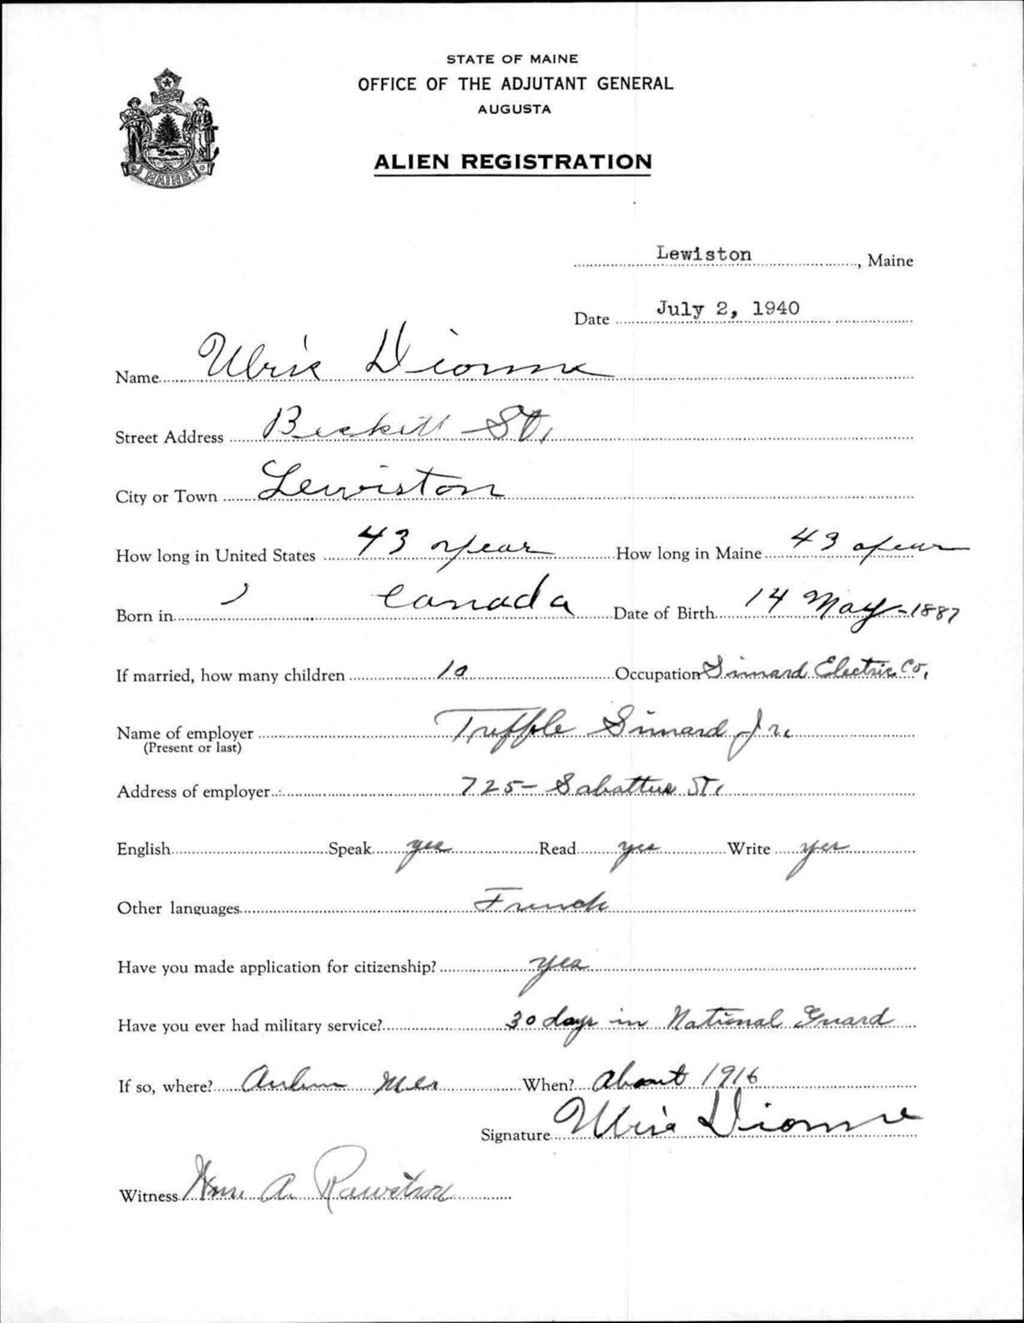 STATE OF MAINE
OFFICE OF THE ADJUTANT GENERAL
AUGUSTA
MAINE
ALIEN REGISTRATION
Lewiston, Maine
Date July 2, 1940
Name Dionne
Street Address St.
City or Town Lewiston
How long in United States 43 year How long in Maine 43 year
Born in Canada Date of Birth 14 May-1887
If married, how many children 10 Occupation Simard Electric Co.
Name of employer Simard Jr.
(Present or last)
Address of employer 725- Sabattus St.
English Speak yes Read yes Write yes
Other languages French
Have you made application for citizenship? yes
Have you ever had military service? 30 days in National Guard
If so, where? When? About 1916
Signature Dionne
Witness A.